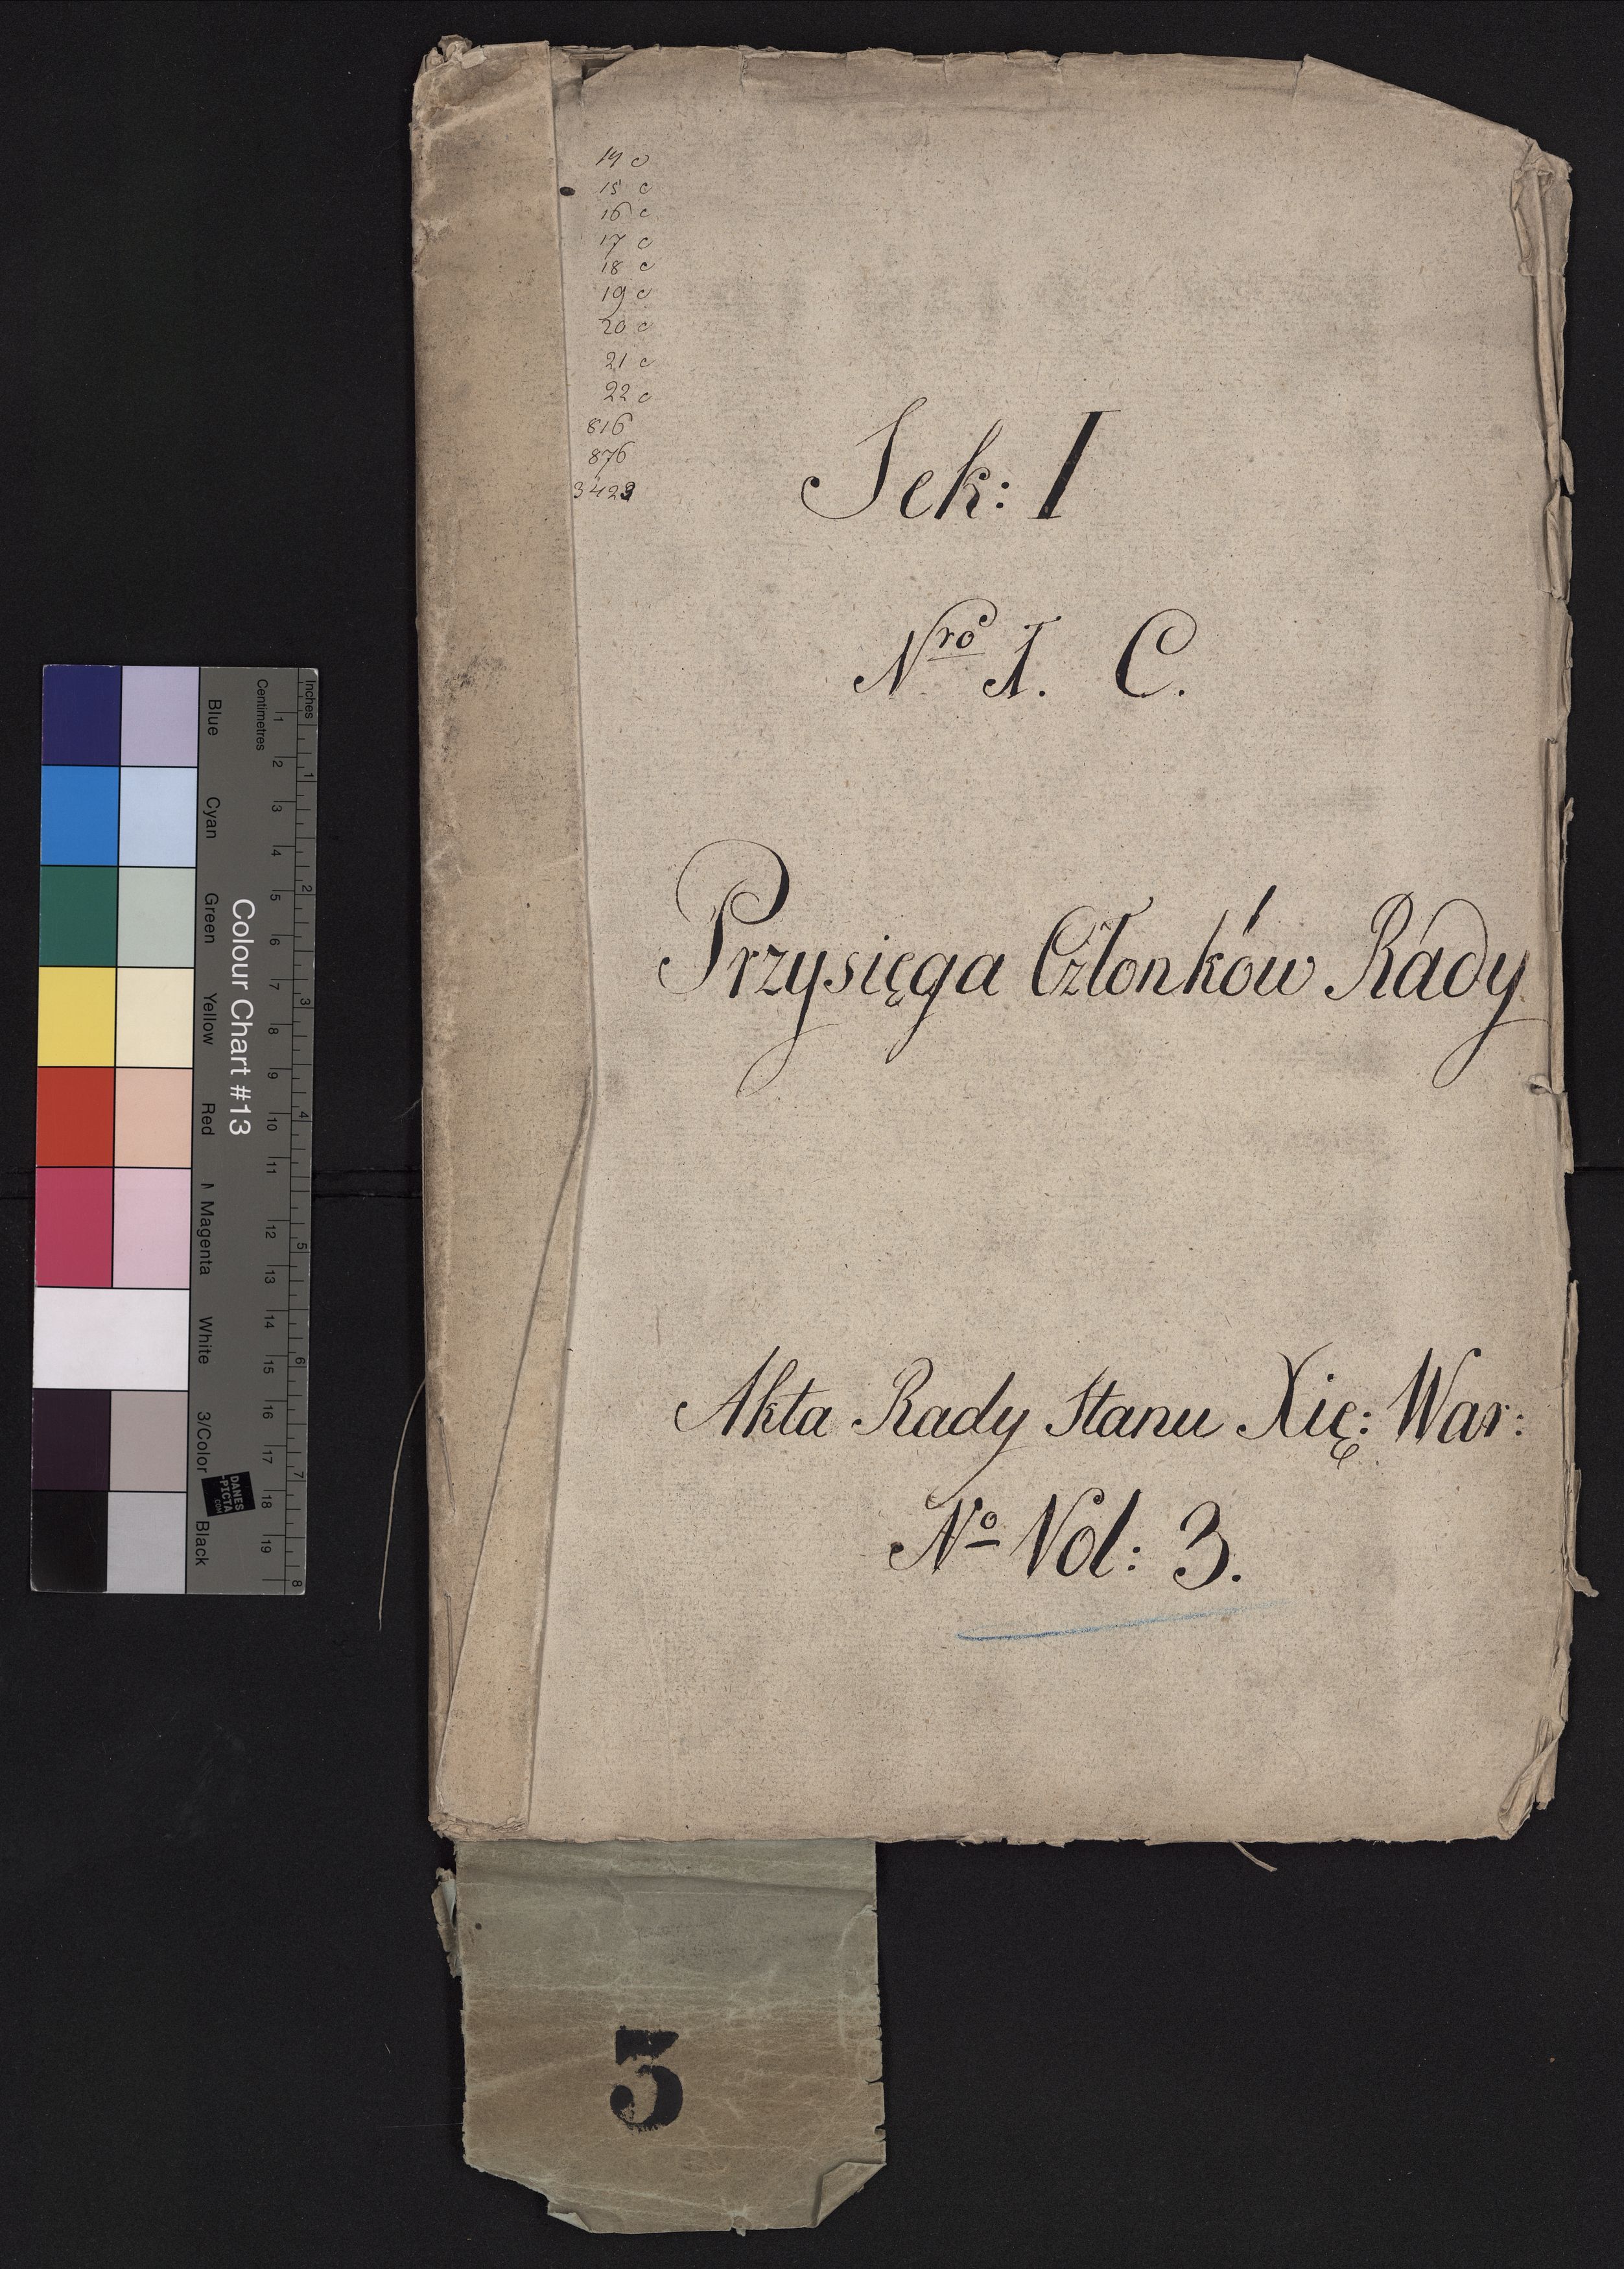 14 c
15 c
16 c
17 c
18 c
19 c
20 c
21 c
22 c
816
876
3423
Sek: I
Nro I. C.
Przysięga Członków Rady
Akta Rady Stanu Xię: War:
No Vol: 3.
3
Inches
1 2 3 4 5 6 7 8
Centimetres
1 2 3 4 5 6 7 8 9 10 11 12 13 14 15 16 17 18 19
Colour Chart #13
Blue
Cyan
Green
Yellow
Red
Magenta
White
3/Color
Black
DANES
-PICTA
.COM